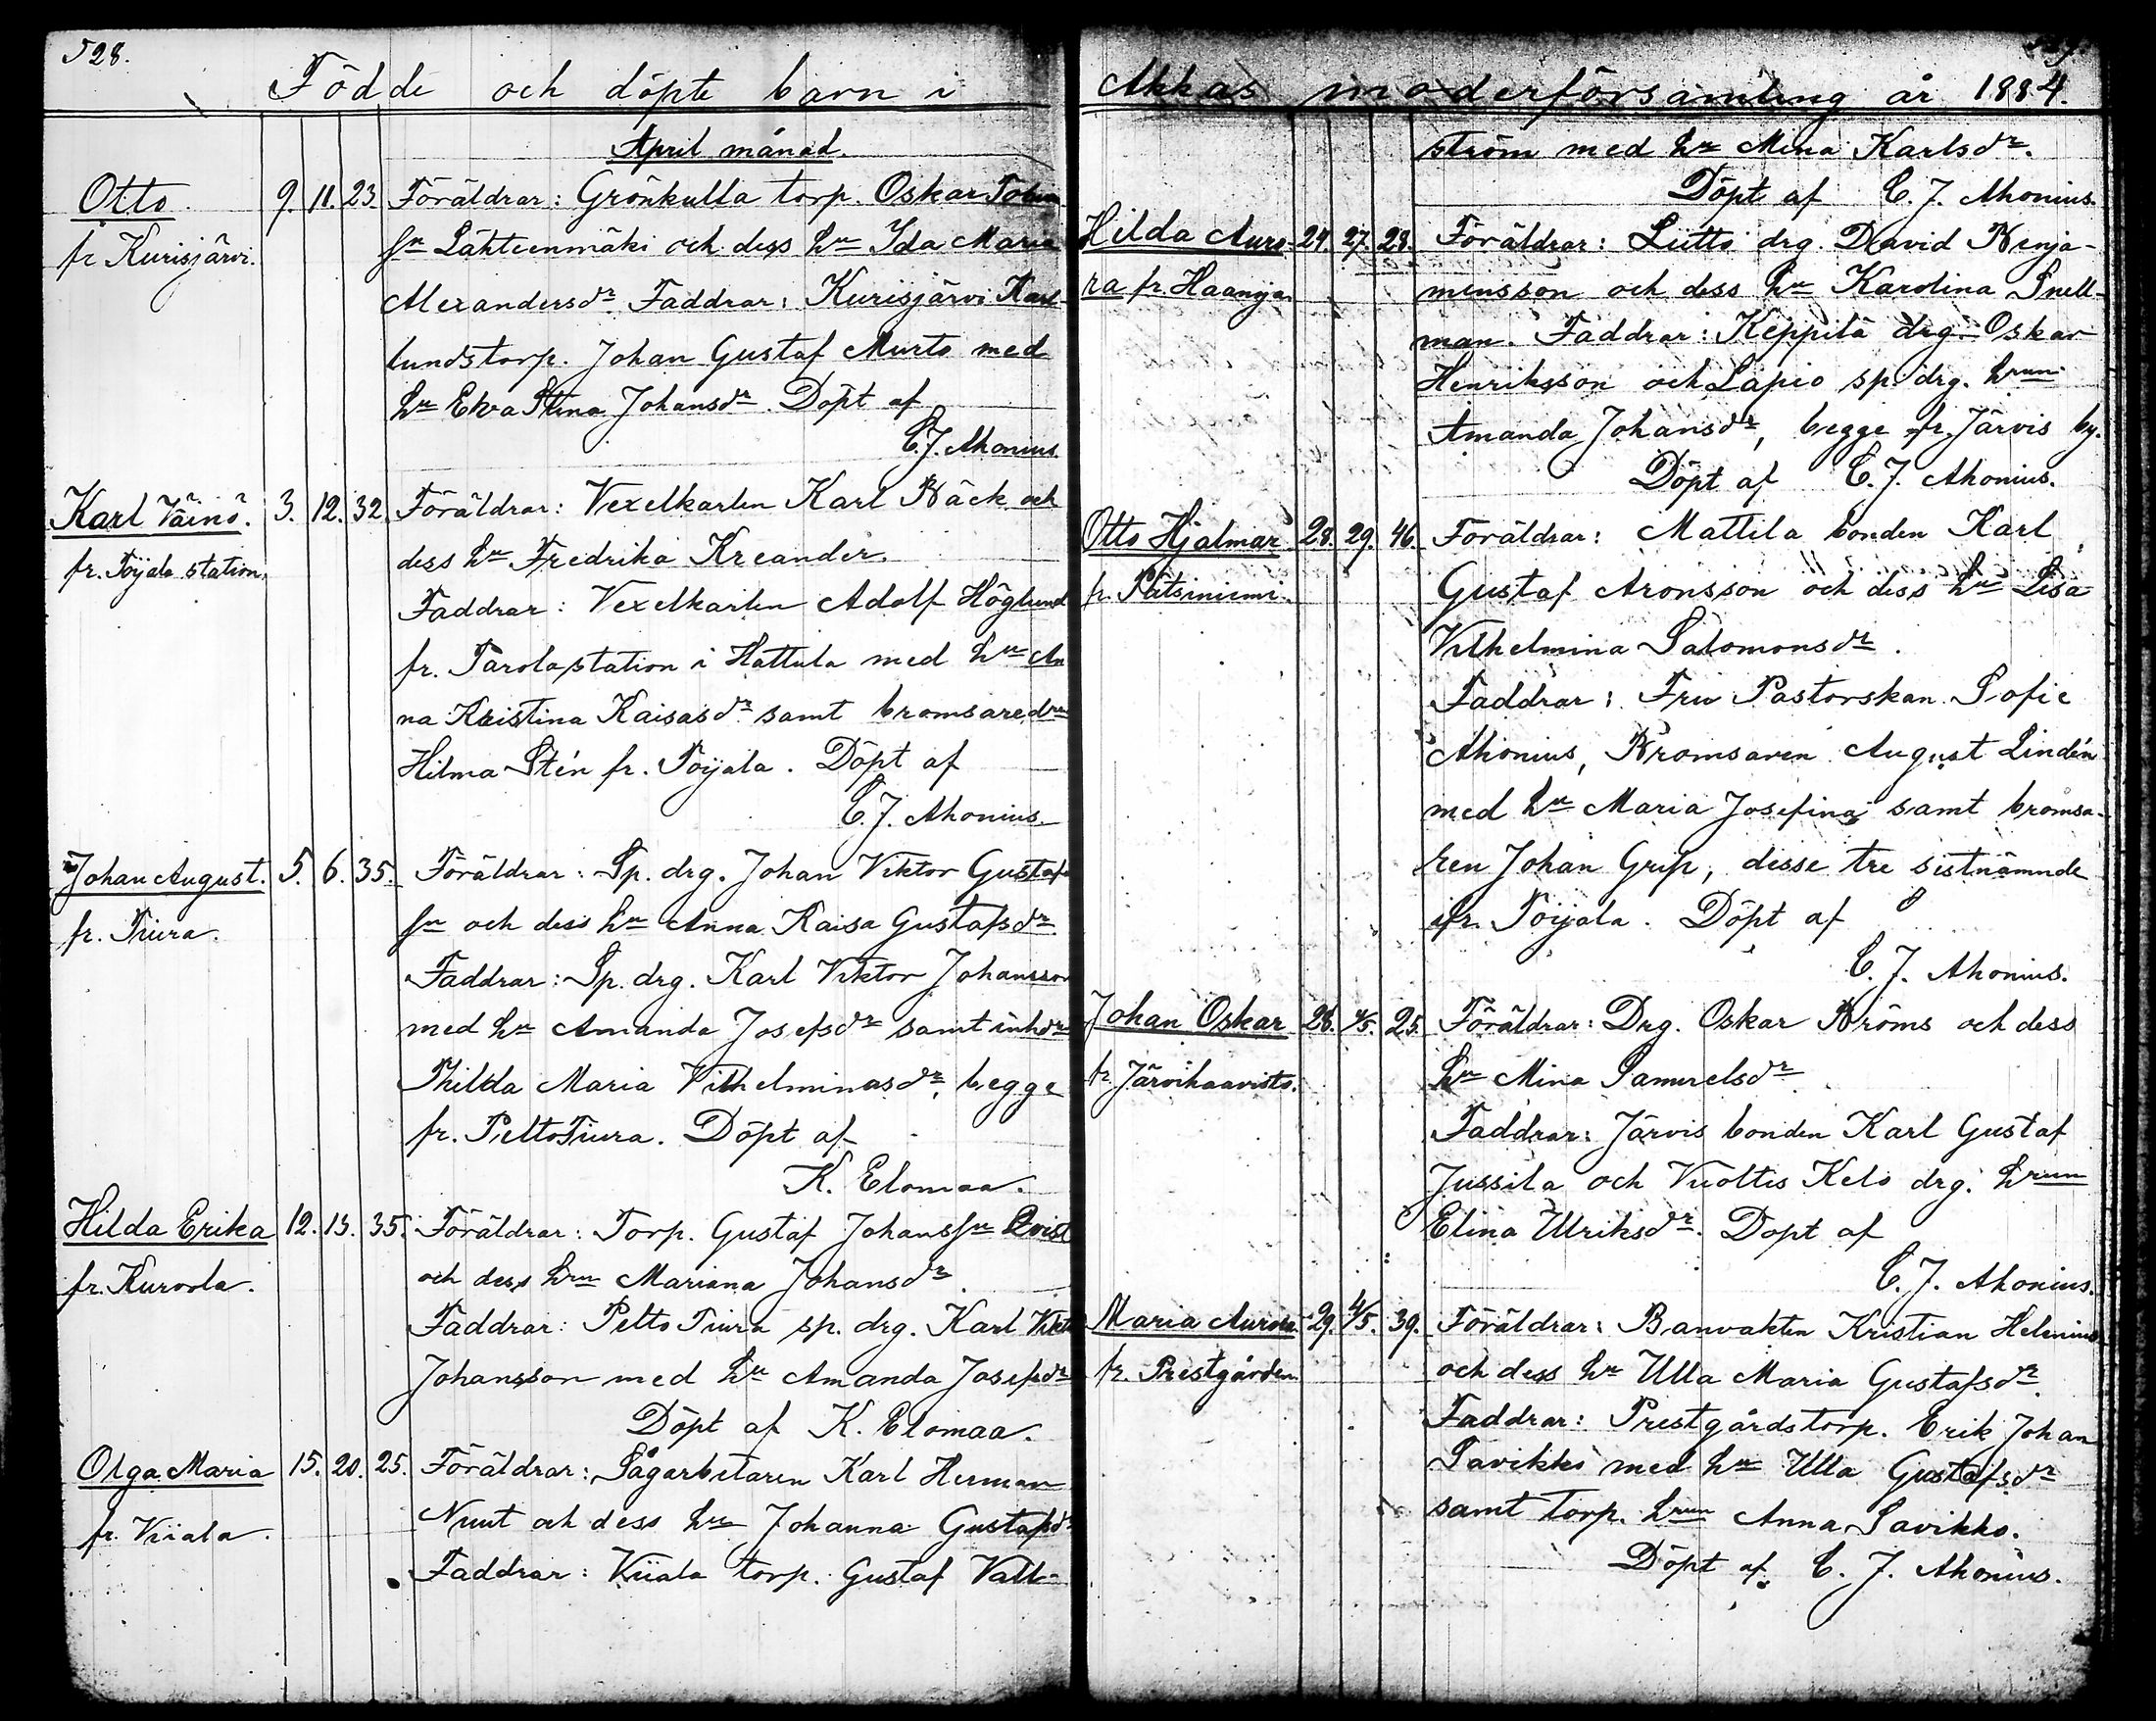 528.
Födde och döpte barn i
April månad.
Otto. 9. 11. 23. Föräldrar: Grönkulla torp. Oskar
fr Kurisjärvi. sn Lähteenmäki och dess hu Ida Maria
Alexandersdr. Faddrar: Kurisjärvi Karl-
lundstorp. Johan Gustaf Murto med
hu Eva Stina Johansdr. Döpt af
C. J. Ahonius.
Karl Väinö. 3. 12. 32. Föräldrar: Vexelkarlen Karl Bäck och
fr. Toijala station. dess hu Fredrika Kreander.
Faddrar: Vexelkarlen Adolf Höglund
fr. Parola station i Hattula med hu An
na Kristina Kaisasdr samt bromsare
Hilma Stén fr. Toijala. Döpt af
C. J. Ahonius.
Johan August. 5. 6. 35. Föräldrar: Sp. drg. Johan Viktor Gustaf
fr. Tiura. sn och dess hu Anna Kaisa Gustafsdr.
Faddrar: Sp. drg. Karl Viktor Johansson
med hu Amanda Josefsdr samt inhdr
Thilda Maria Vilhelminasdr, begge
fr. PeltoTiura. Döpt af
K. Elomaa.
Hilda Erika 12. 13. 35. Föräldrar: Torp. Gustaf Johanssn Qvist
fr. Kurvola. och dess hru Mariana Johansdr.
Faddrar: Pelto Tiura sp. drg. Karl Vikto
Johansson med hu Amanda Josefsdr
Döpt af K. Elomaa.
Olga Maria 15. 20. 25. Föräldrar: Sågarbetaren Karl Herman
fr. Viiala. Nuut och dess hu Johanna Gustafsdr
Faddrar: Viiala torp. Gustaf Vall-
Akkas moderförsamling år 1884.
ström med hu Mina Karlsdr.
Döpt af C. J. Ahonius.
Hilda Auro- 24. 27. 28. Föräldrar: Lutto drg. David Benja-
ra fr. Haanoja. minsson och dess hu Karolina Snell-
man. Faddrar: Keppilä drg. Oskar
Henriksson och Lapio sp. drg. hrun
Amanda Johansdr, begge fr. Järvis by.
Döpt af C. J. Ahonius.
Otto Hjalmar 28. 29. 46. Föräldrar: Mattila bonden Karl
fr. Pätsiniemi. Gustaf Aronsson och dess hu Lisa
Vilhelmina Salomonsdr.
Faddrar: Fru Pastorskan Sofie
Ahonius, Bromsaren August Lindén
med hu Maria Josefina samt bromsa-
ren Johan Grip, desse tre sistnämnde
ifr. Toijala. Döpt af
C. J. Ahonius.
Johan Oskar 28. 4/5. 25. Föräldrar: Drg. Oskar Bröms och dess
fr. Järvihaavisto. hu Mina Samuelsdr
Faddrar: Järvis bonden Karl Gustaf
Jussila och Vuoltis Kelo drg. hrun
Elina Ulriksdr. Döpt af
C. J. Ahonius.
Maria Aurora. 29. 4/5. 39. Föräldrar: Banvakten Kristian Helenius
fr. Prestgården. och dess hu Ulla Maria Gustafsdr.
Faddrar: Prestgårdstorp. Erik Johan
Savikko med hu Ulla Gustafsdr
samt torp. hrun Anna Savikko.
Döpt af C. J. Ahonius.